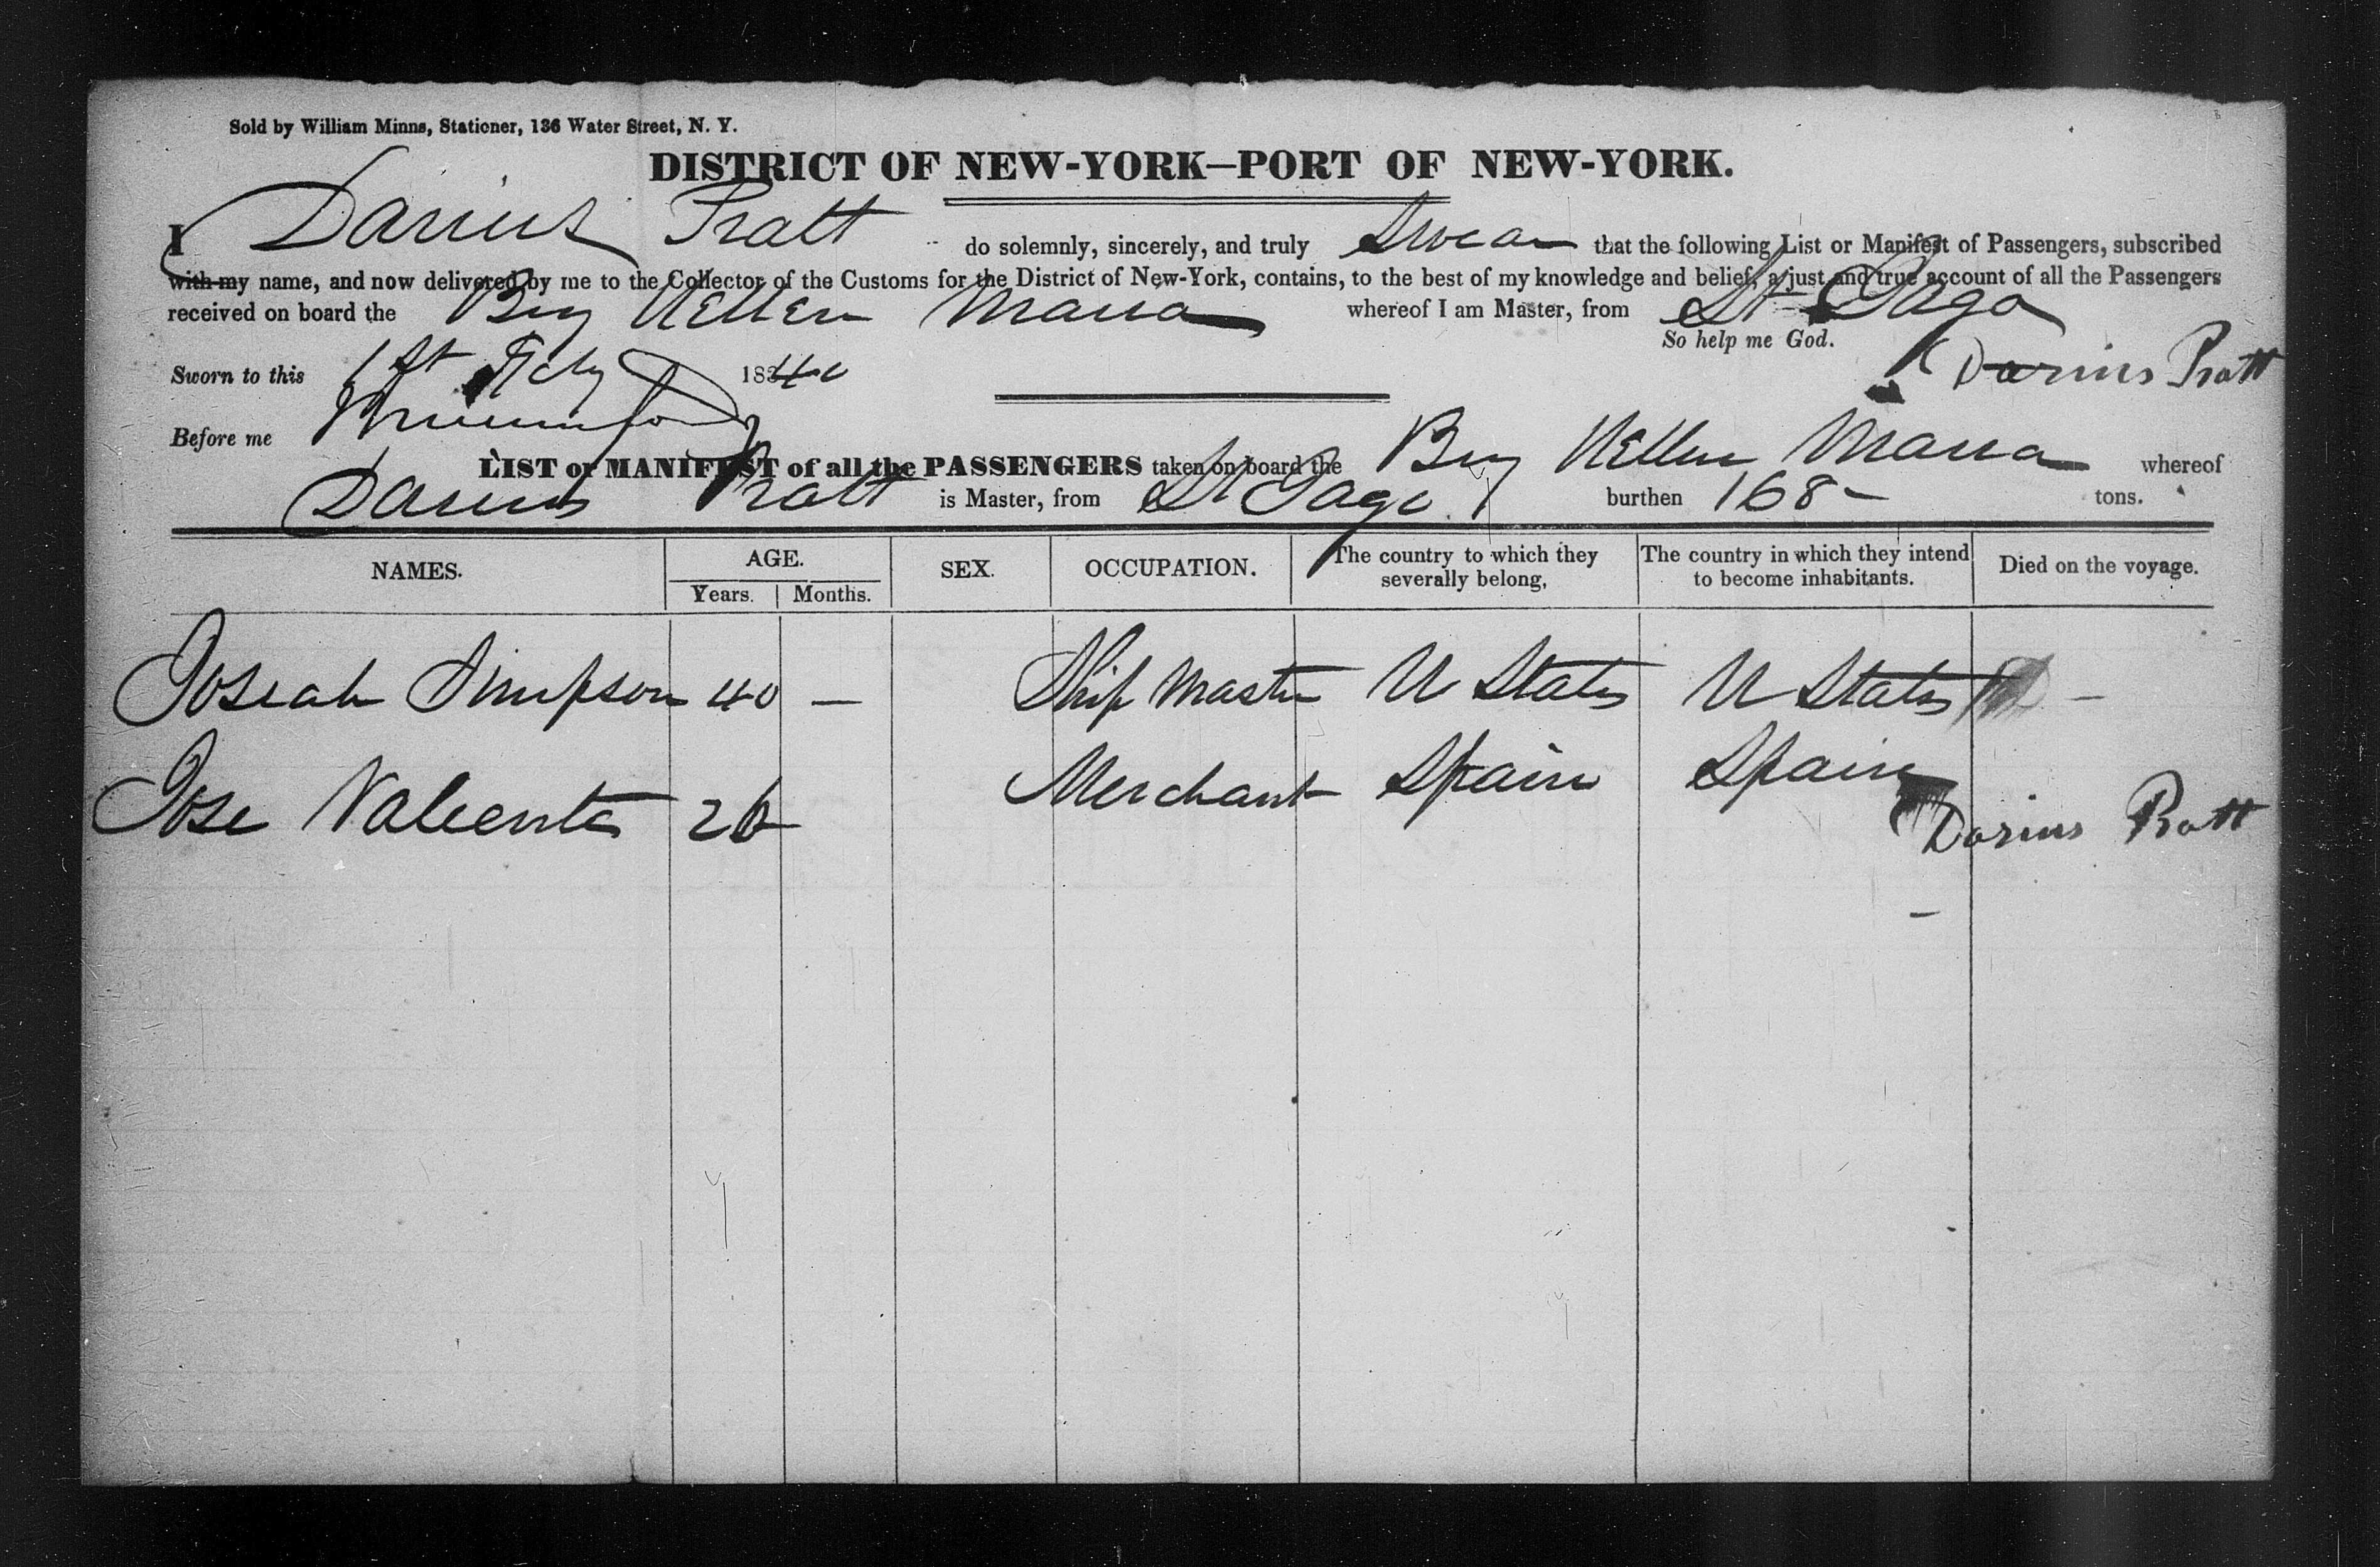 Sold by William Minns, Stationer, 136 Water Street, N. Y.
DISTRICT OF NEW-YORK—PORT OF NEW-YORK.
I Darius Pratt do solemnly, sincerely, and truly Swear that the following List or Manifest of Passengers, subscribed
with my name, and now delivered by me to the Collector of the Customs for the District of New-York, contains, to the best of my knowledge and belief, a just and true account of all the Passengers
received on board the Brig Hellen Maria whereof I am Master, from St Jago
So help me God.
Sworn to this 1st Feby 1840 Darius Pratt
Before me
LIST or MANIFEST of all the PASSENGERS taken on board the Brig Hellen Maria whereof
Darius Pratt is Master, from St Jago burthen 168 tons.
NAMES. AGE. SEX. OCCUPATION. The country to which they severally belong, The country in which they intend to become inhabitants. Died on the voyage.
Years. Months.
Josiah Simpson 40 — Ship Master U States U States —
Jose Valiente 26 Merchant Spain Spain
Darius Pratt